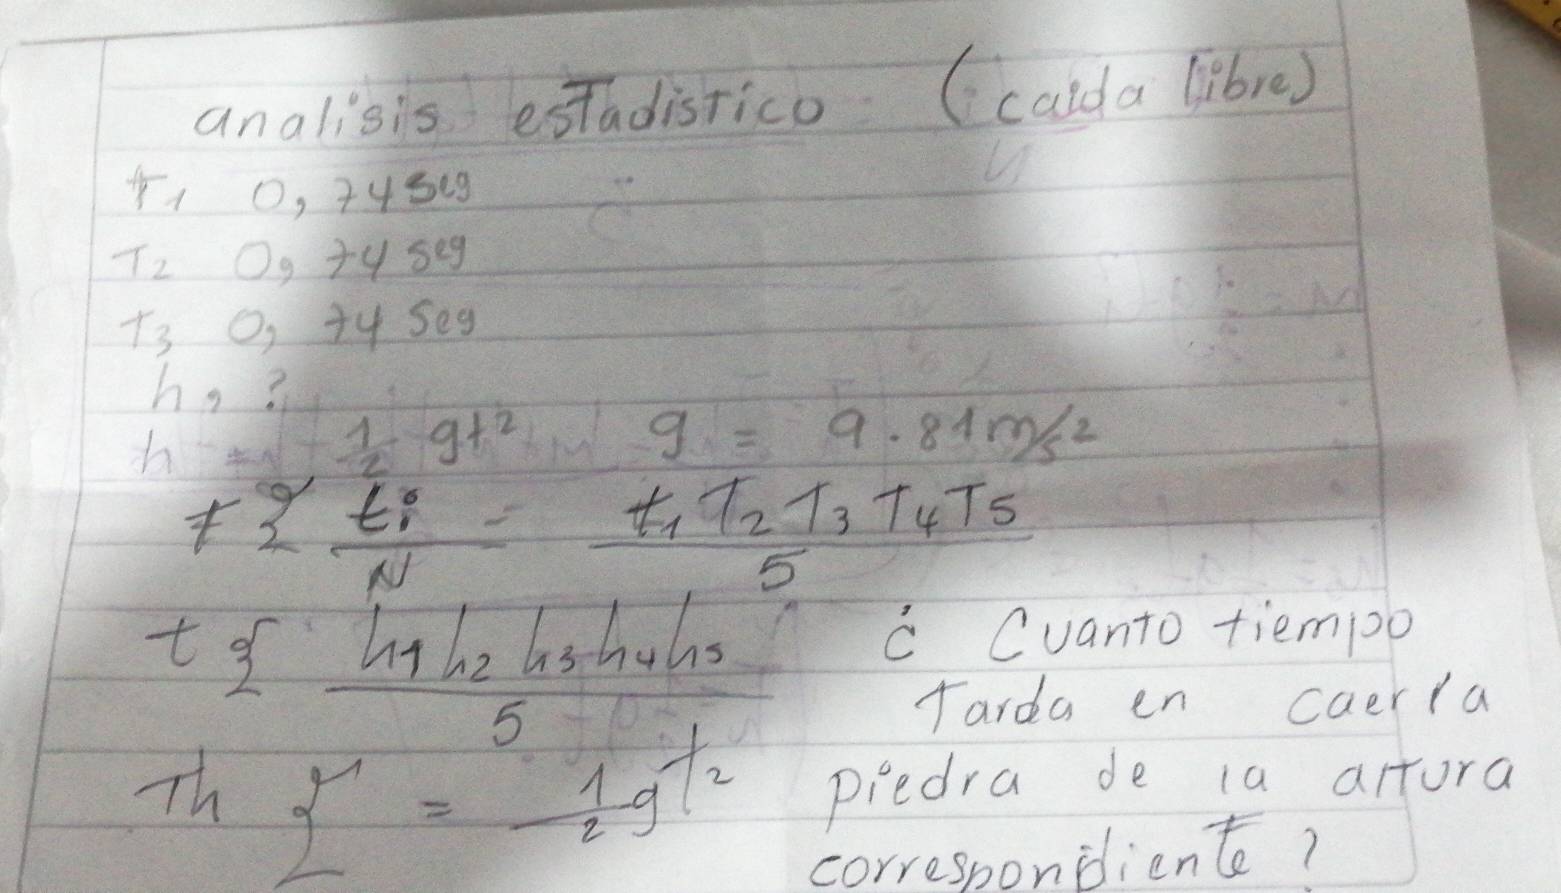 analisis estadistico (caida libre)
t1 0,74 seg
T2 0,74 seg
t3 0,74 Seg
h,?
h = 1/2 gt² g = 9.81m/s2
t Σ ti/N = t1 T2 T3 T4 T5/5
t Σ h1 h2 h3 h4 h5/5
Th Σ = 1/2 gt²
¿ Cuanto tiempo
Tarda en caer la
piedra de la artura
correspondiente?